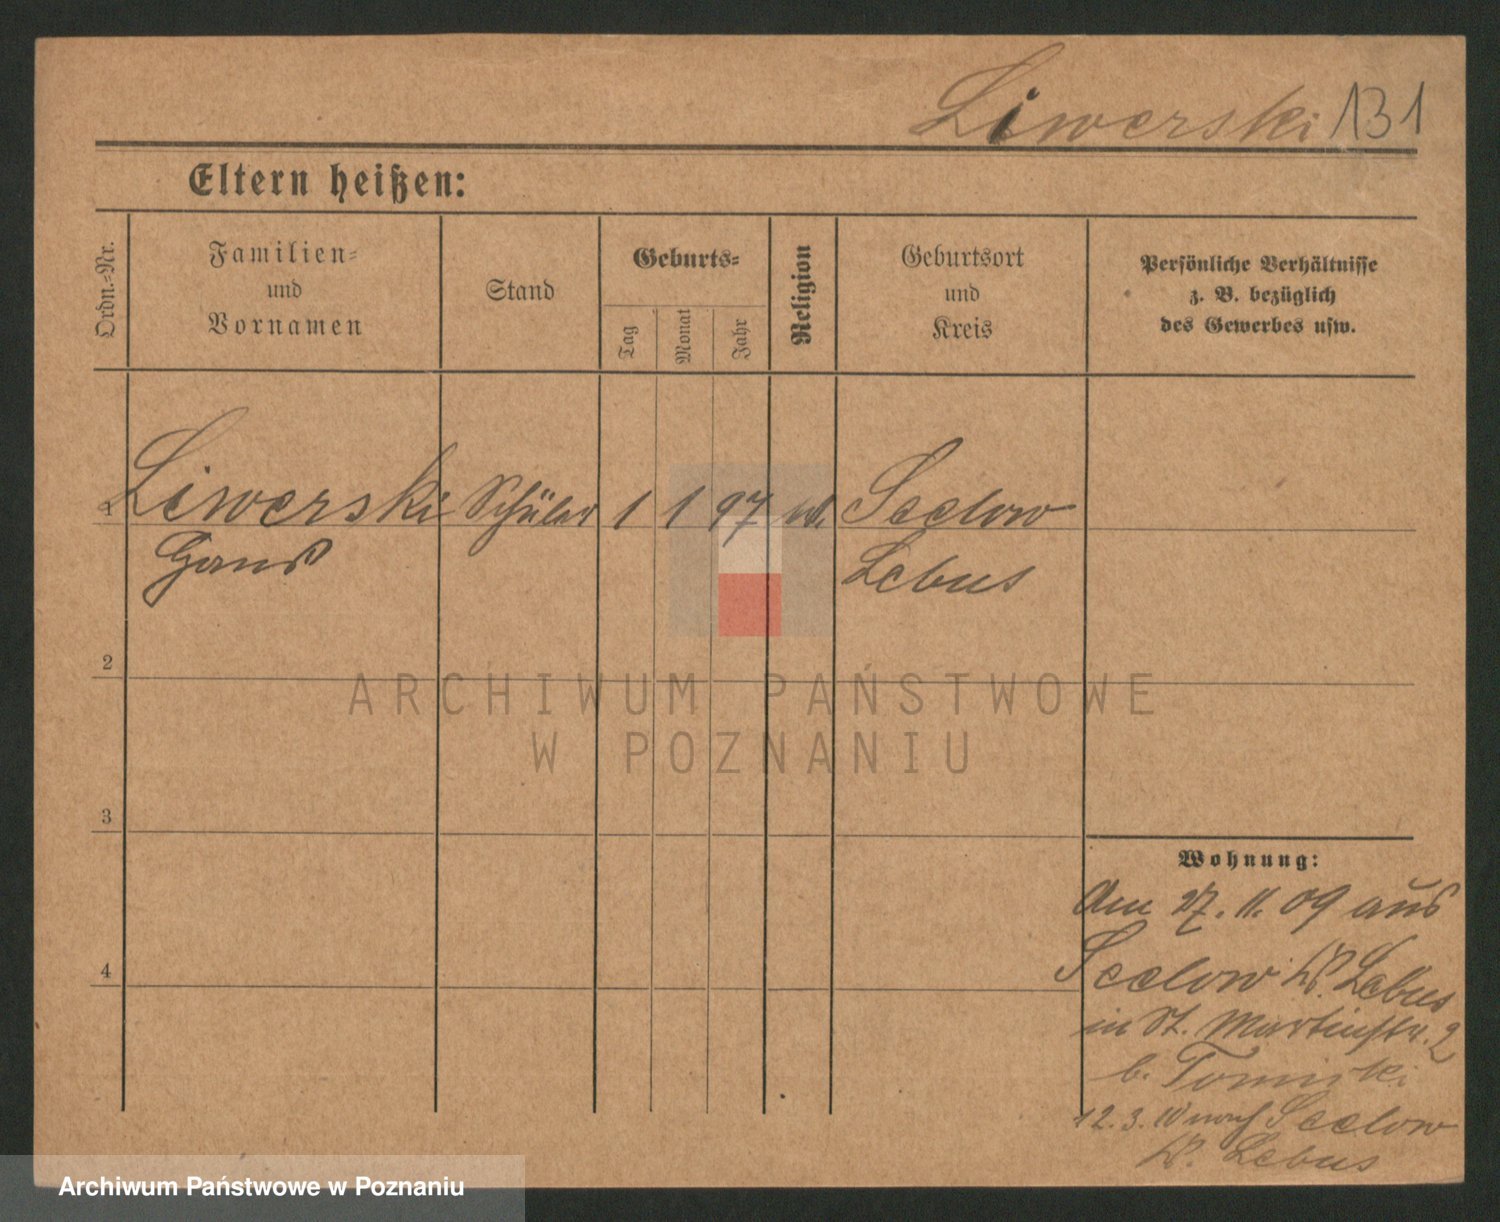 Liwerski 131
Eltern heißen:
Ordn.-Nr.
Familien-
und
Vornamen
Stand
Geburts-
Tag
Monat
Jahr
Religion
Geburtsort
und
Kreis
Persönliche Verhältnisse
z. B. bezüglich
des Gewerbes usw.
1 Liwerski Schüler 1 1 97 Seelow
Hans Lebus
2
3
4
Wohnung:
Am 27. 11. 09 aus
Seelow Kr. Lebus
in St. Martinstr. 2
b. Tominski
12.3.10 nach Seelow
Kr. Lebus
ARCHIWUM PAŃSTWOWE
W POZNANIU
Archiwum Państwowe w Poznaniu